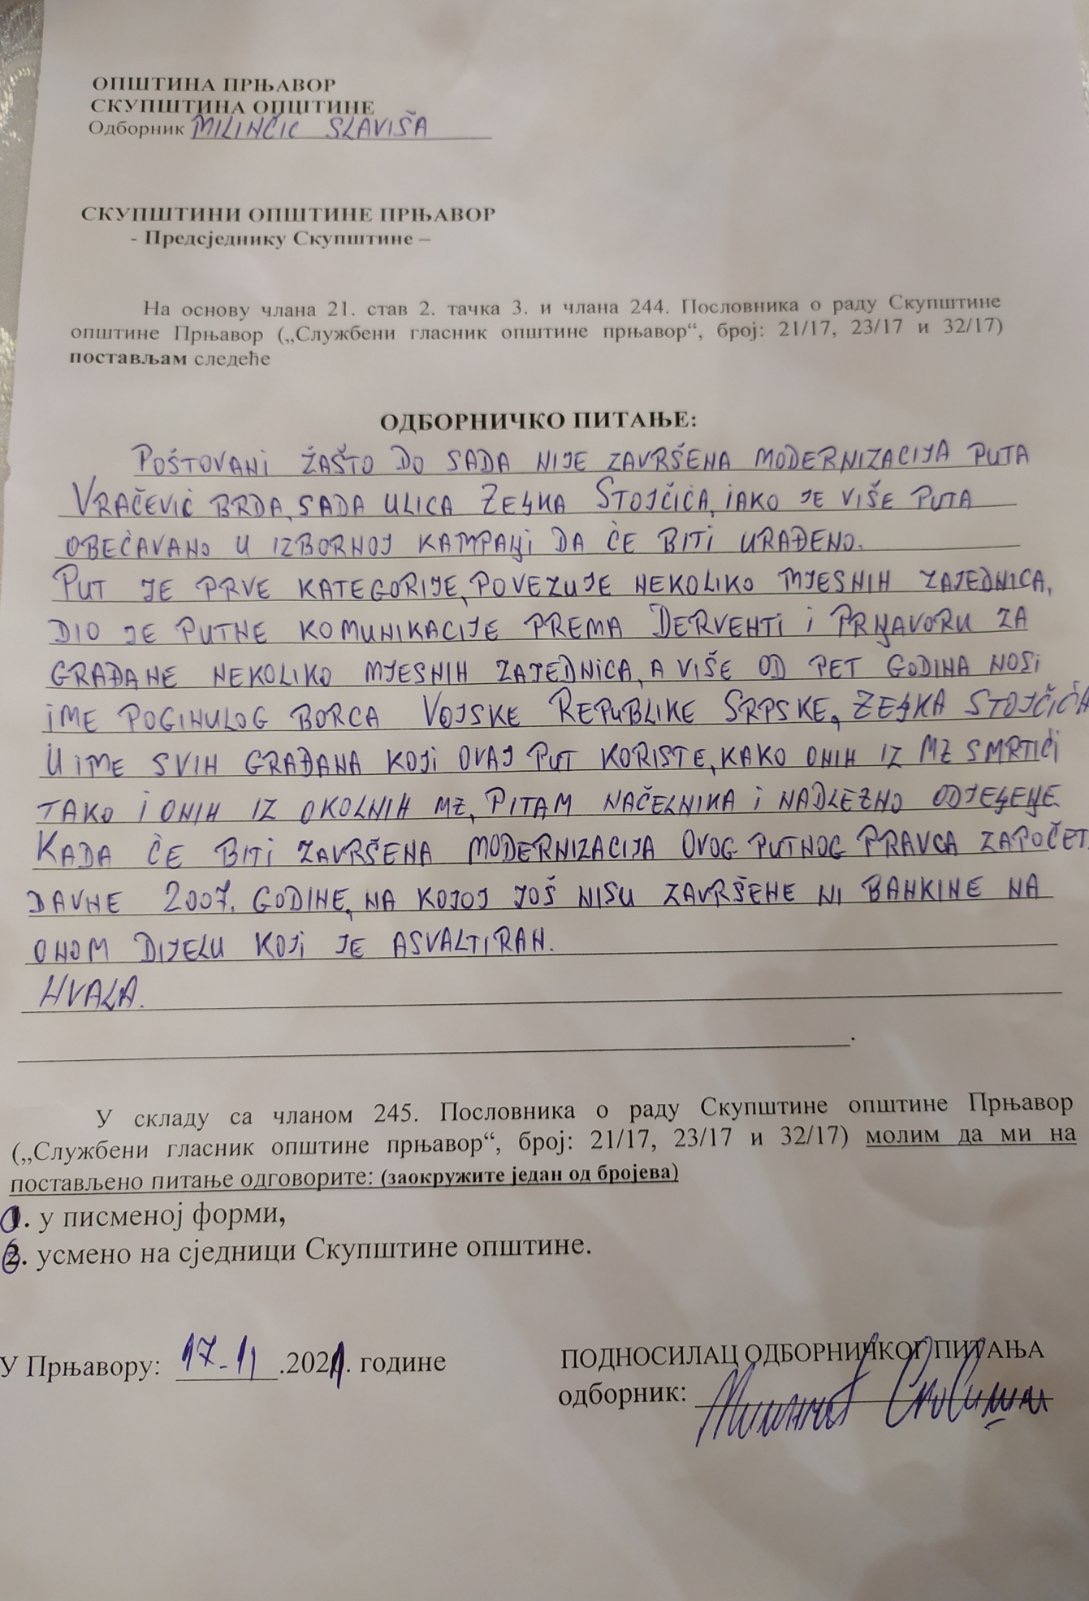 ОПШТИНА ПРЊАВОР
СКУПШТИНА ОПШТИНЕ
Одборник MILINČIĆ SLAVIŠA
СКУПШТИНИ ОПШТИНЕ ПРЊАВОР
- Предсједнику Скупштине –
На основу члана 21. став 2. тачка 3. и члана 244. Пословника о раду Скупштине
општине Прњавор („Службени гласник општине прњавор“, број: 21/17, 23/17 и 32/17)
постављам следеће
ОДБОРНИЧКО ПИТАЊЕ:
POŠTOVANI ŽAŠTO DO SADA NIJE ZAVRŠENA MODERNIZACIJA PUTA
VRAČEVIĆ BRDA, SADA ULICA ŽEЉKA STOJČIĆA, IAKO JE VIŠE PUTA
OBEĆAVANO U IZBORNOJ KAMPAЊI DA ĆE BITI URAĐENO.
PUT JE PRVE KATEGORIJE, POVEZUJE NEKOLIKO MJESNIH ZAJEDNICA,
DIO JE PUTNE KOMUNIKACIJE PREMA DERVENTI I PRЊAVORU ZA
GRAĐANE NEKOLIKO MJESNIH ZAJEDNICA, A VIŠE OD PET GODINA NOSI
IME POGINULOG BORCA VOJSKE REPUBLIKE SRPSKE, ŽEЉKA STOJČIĆA
U IME SVIH GRAĐANA KOJI OVAJ PUT KORISTE, KAKO ONIH IZ MZ SMRTIĆI
TAKO I ONIH IZ OKOLNIH MZ, PITAM NAČELNIKA I NADLEŽNO ODJEЉEЊE
KADA ĆE BITI ZAVRŠENA MODERNIZACIJA OVOG PUTNOG PRAVCA ZAPOČET
DAVNE 2007. GODINE, NA KOJOJ JOŠ NISU ZAVRŠENE NI BANKINE NA
ONOM DIJELU KOJI JE ASVALTIRAN.
HVALA.
У складу са чланом 245. Пословника о раду Скупштине општине Прњавор
(„Службени гласник општине прњавор“, број: 21/17, 23/17 и 32/17) молим да ми на
постављено питање одговорите: (заокружите један од бројева)
1. у писменој форми,
2. усмено на сједници Скупштине општине.
У Прњавору: 17-11.2021. године
ПОДНОСИЛАЦ ОДБОРНИЧКОГ ПИТАЊА
одборник: Милинчић Славиша